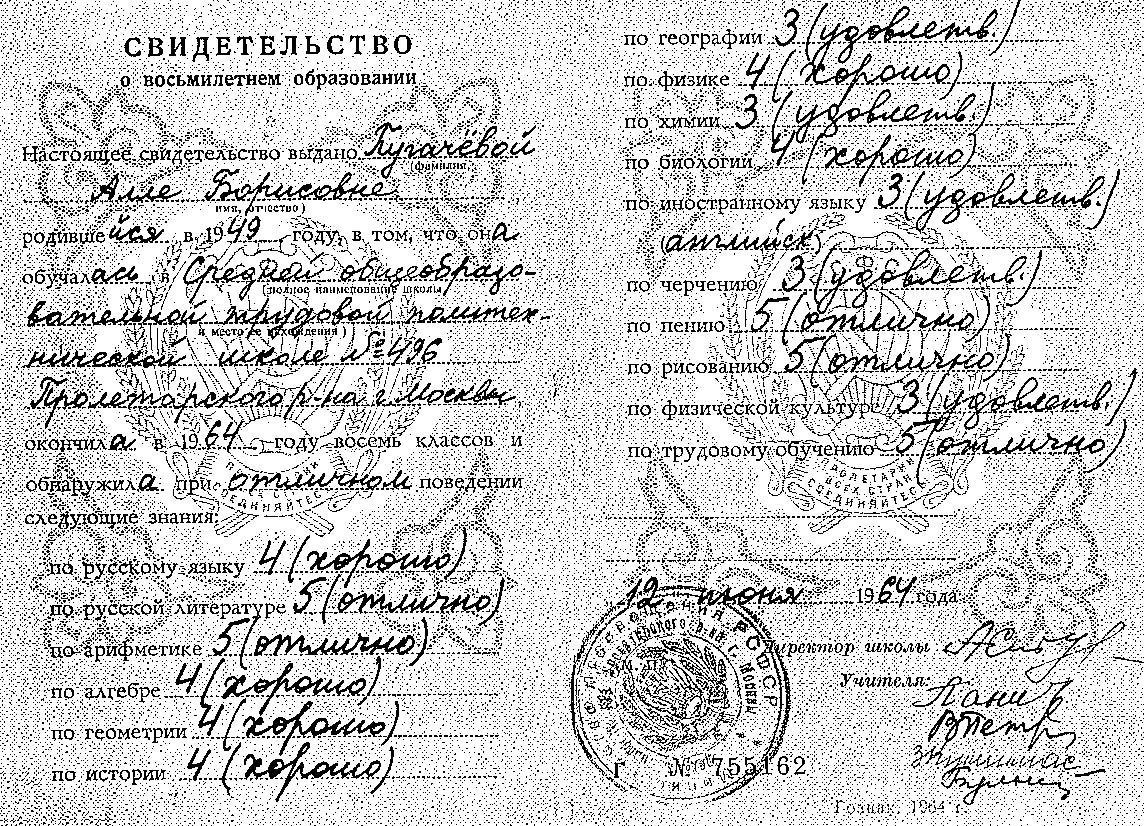 СВИДЕТЕЛЬСТВО
о восьмилетнем образовании
Настоящее свидетельство выдано Пугачёвой
(фамилия,
Алле Борисовне
имя, отчество)
родившейся в 1949 году, в том, что она
обучалась в Средней общеобразо-
(полное наименование школы
вательной трудовой политех-
и место ее нахождения)
нической школе №496
Пролетарского р-на г. Москвы
окончила в 1964 году восемь классов и
обнаружила при отличном поведении
следующие знания:
по русскому языку 4 (хорошо)
по русской литературе 5 (отлично)
по арифметике 5 (отлично)
по алгебре 4 (хорошо)
по геометрии 4 (хорошо)
по истории 4 (хорошо)
по географии 3 (удовлетв.)
по физике 4 (хорошо)
по химии 3 (удовлетв.)
по биологии 4 (хорошо)
по иностранному языку 3 (удовлетв.)
(английск)
по черчению 3 (удовлетв.)
по пению 5 (отлично)
по рисованию 5 (отлично)
по физической культуре 3 (удовлетв.)
по трудовому обучению 5 (отлично)
ПРОЛЕТАРИИ
ВСЕХ СТРАН
СОЕДИНЯЙТЕСЬ
12 июня 1964 года
Директор школы
Учителя:
М. П.
РСФСР
Г № 755162
Гознак, 1964 г.